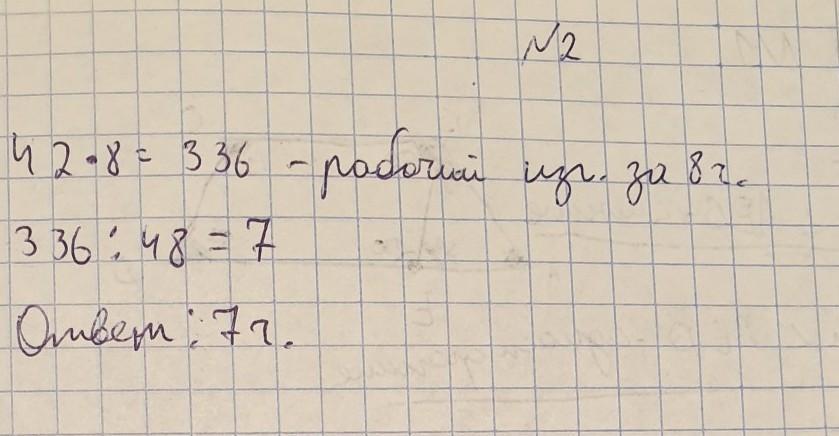 №2
42·8= 336 - рабочий изг. за 8 ч.
336 : 48 = 7
Ответ: 7 ч.